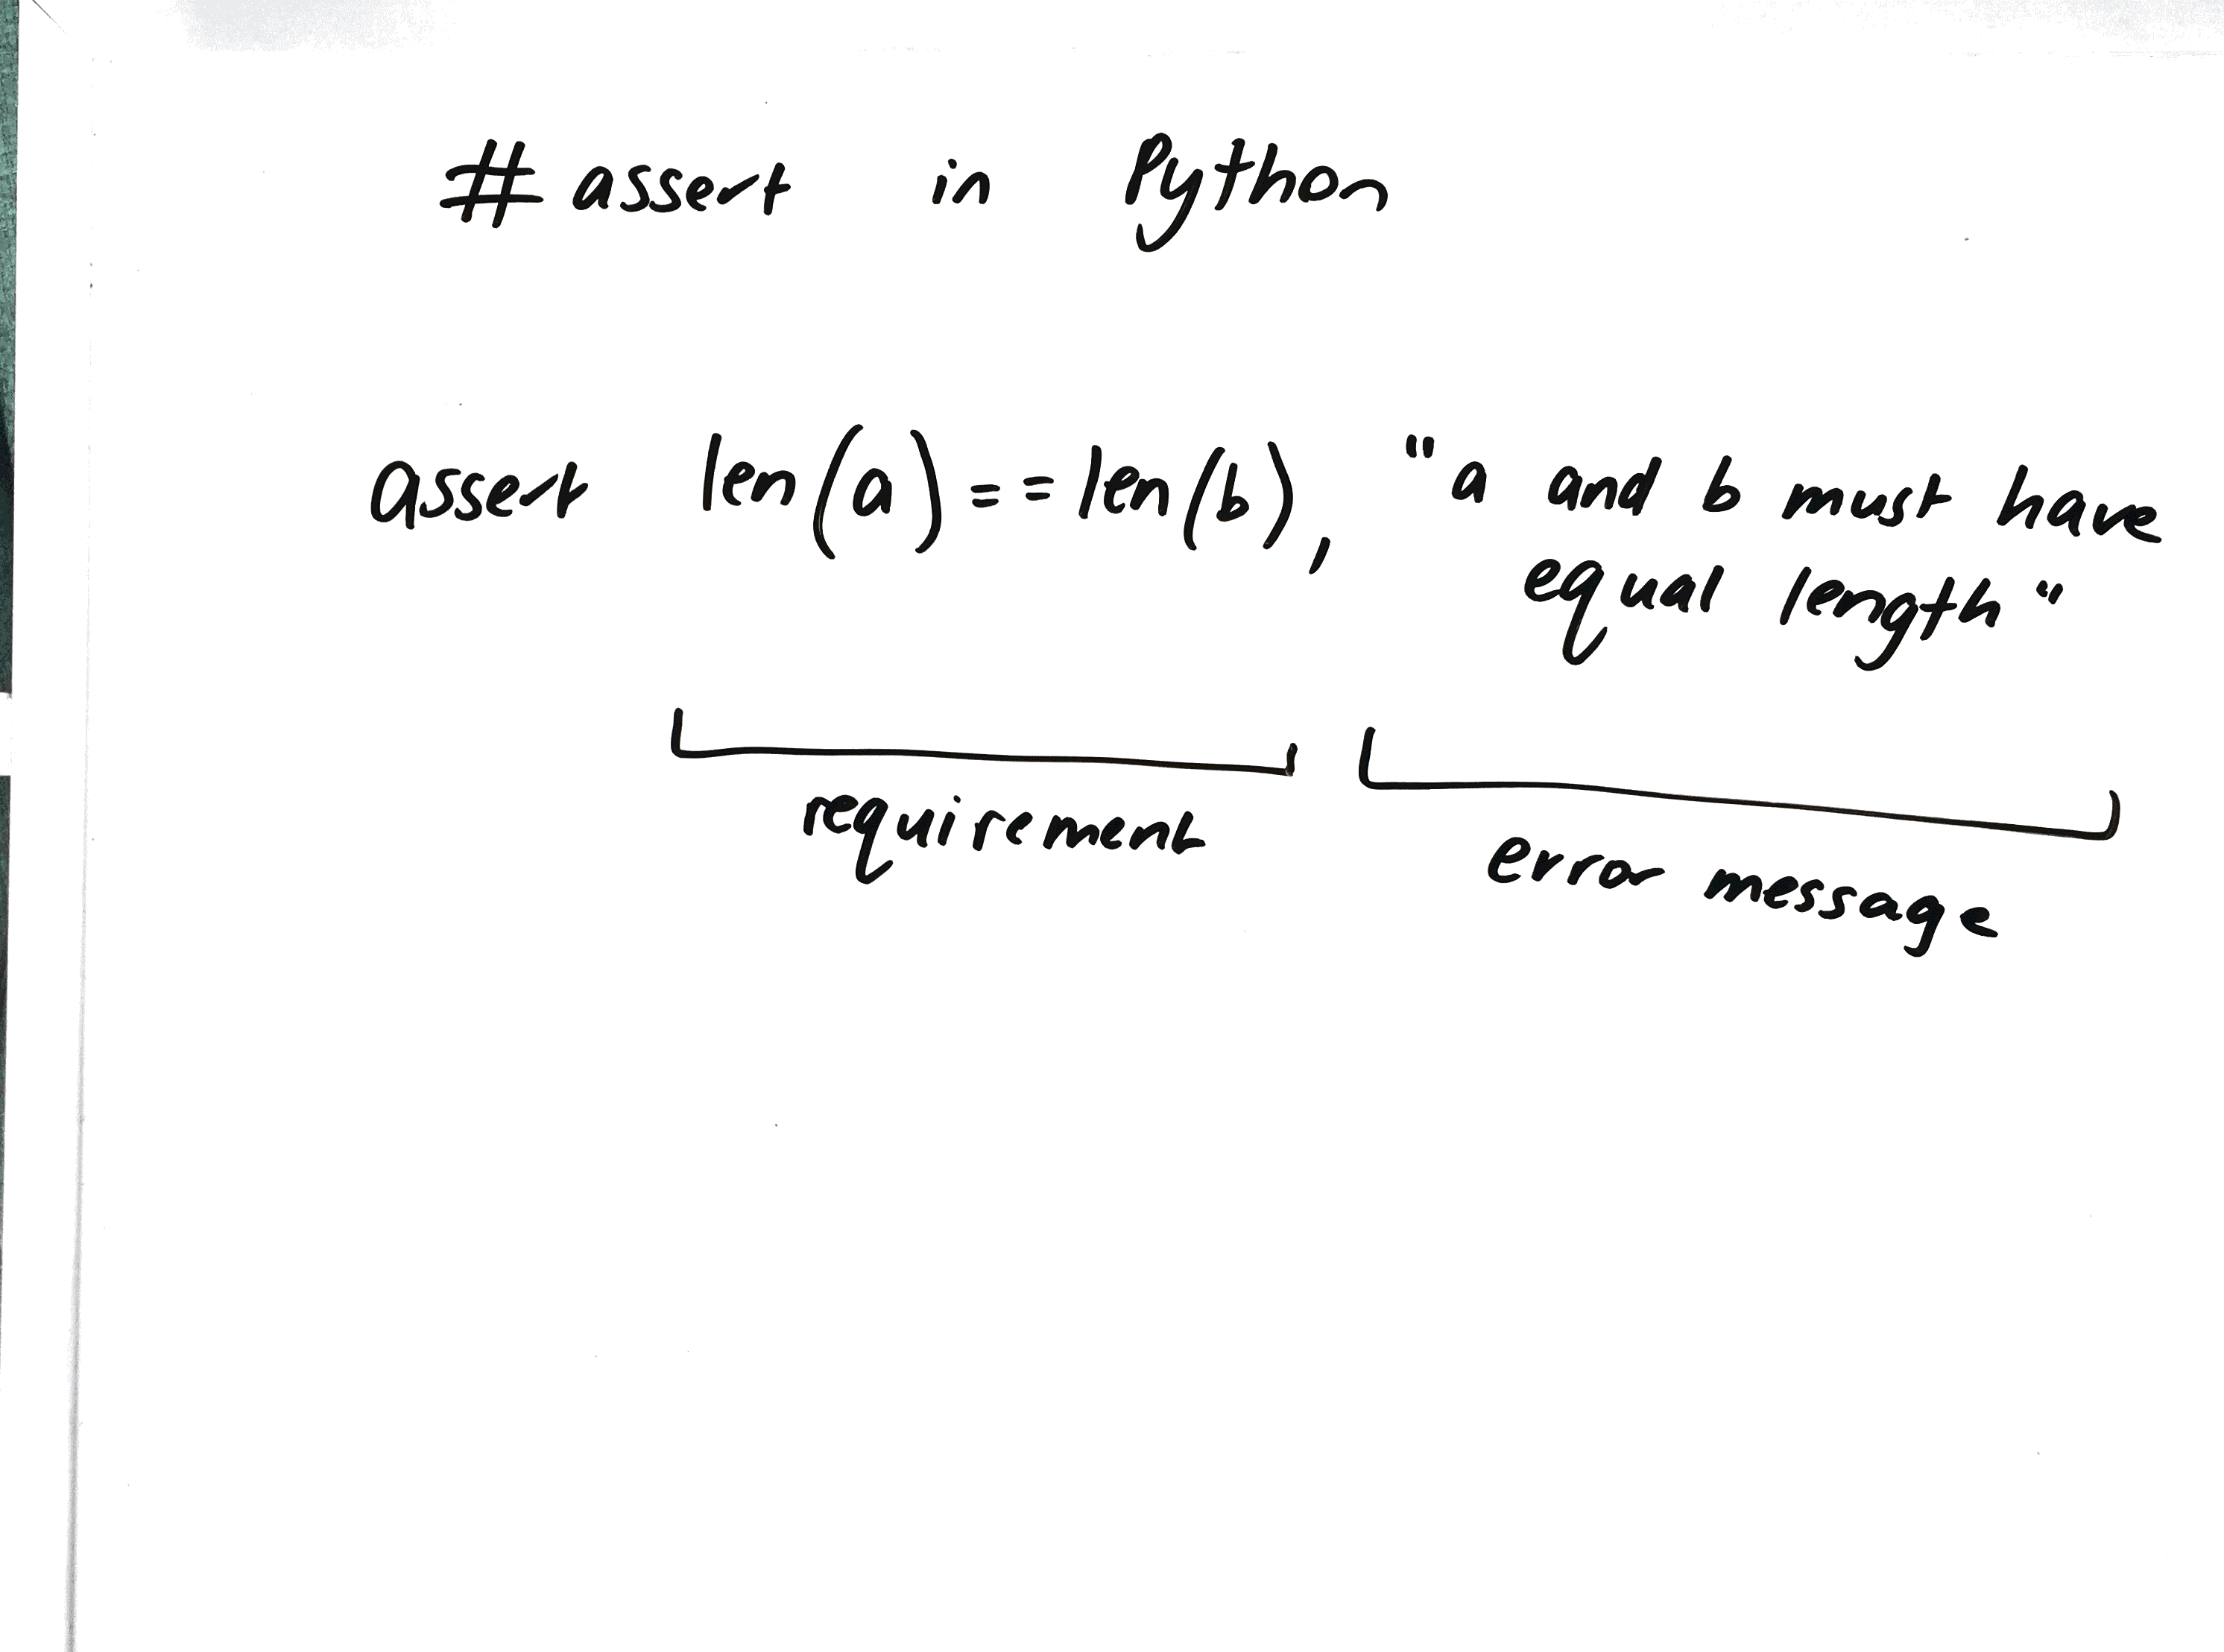 # assert in Python
assert len(a) == len(b), "a and b must have
equal length"
requirement
error message